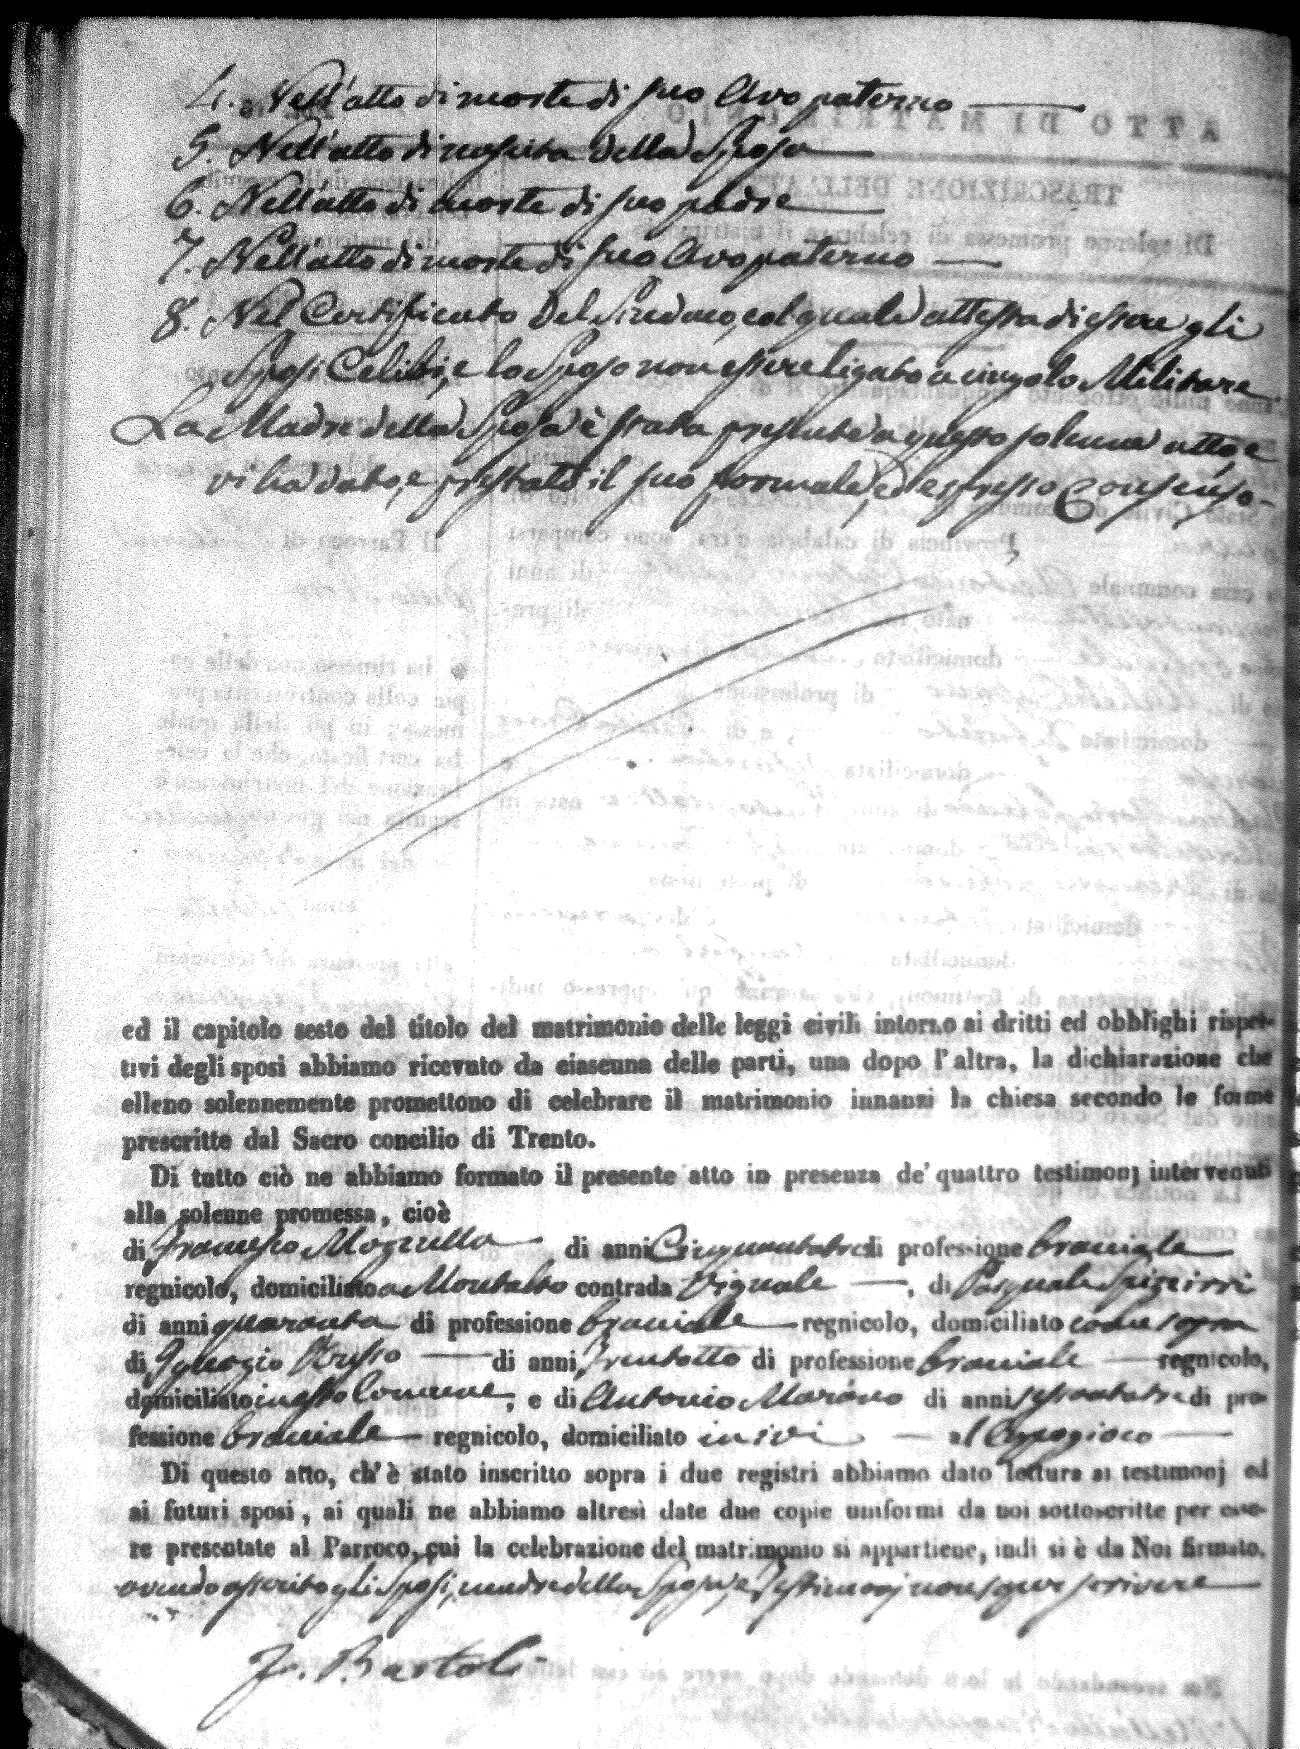 4. Nell'atto di morte di suo Avo paterno
5. Nell'atto di nascita della Sposa
6. Nell'atto di morte di suo padre
7. Nell'atto di morte di suo Avo paterno
8. Nel Certificato del Sindaco, col quale attesta di essere gli
Sposi Celibi, e lo Sposo non essere ligato a vincolo Militare
La Madre della Sposa è stata presente a questo solenne atto, e
vi ha dato, e prestato il suo formale, ed espresso Consenso-
ed il capitolo sesto del titolo del matrimonio delle leggi civili intorno ai dritti ed obblighi rispet-
tivi degli sposi abbiamo ricevuto da ciascuna delle parti, una dopo l'altra, la dichiarazione che
elleno solennemente promettono di celebrare il matrimonio innanzi la chiesa secondo le forme
prescritte dal Sacro concilio di Trento.
Di tutto ciò ne abbiamo formato il presente atto in presenza de' quattro testimonj intervenuti
alla solenne promessa, cioè
di Francesco di anni Cinquantatre di professione bracciale
regnicolo, domiciliato a Montalto contrada Vignale, di Pasquale
di anni quaranta di professione bracciale regnicolo, domiciliato come sopra
di Ignazio Russo di anni Trentotto di professione bracciale regnicolo,
domiciliato in esso Comune, e di Antonio Marano di anni settantatre di pro-
fessione bracciale regnicolo, domiciliato in ivi
Di questo atto, ch'è stato inscritto sopra i due registri abbiamo dato lettura ai testimonj ed
ai futuri sposi, ai quali ne abbiamo altresì date due copie uniformi da noi sottoscritte per esse-
re presentate al Parroco, cui la celebrazione del matrimonio si appartiene, indi si è da Noi firmato,
avendo asserito gli Sposi, madre della Sposa, e Testimonj non saper scrivere
Fr. Bartoli